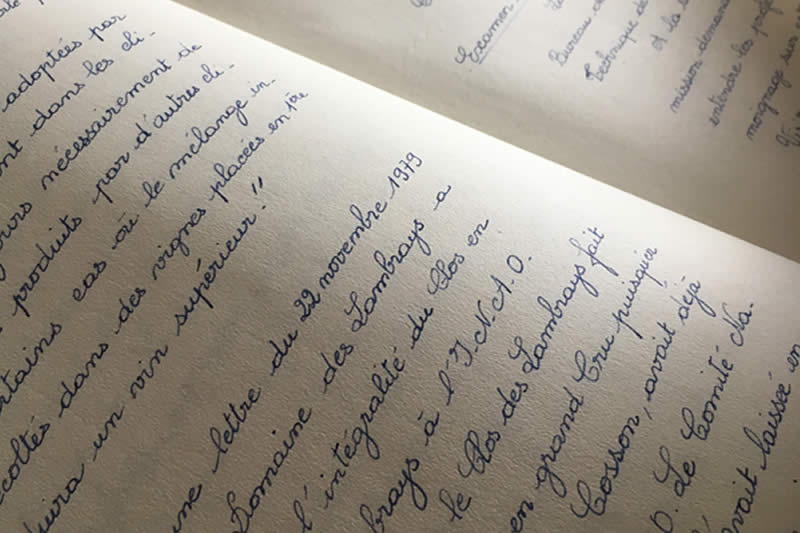 adoptées par
dans les cli-
nécessairement de
produits par d'autres cli-
cas où le mélange in-
dans des vignes placées en 1ère
un vin supérieur!!
lettre du 22 novembre 1979
Domaine des Lambrays a
l'intégralité du Clos en
brays à l'I.N.A.O.
le Clos des Lambrays fait
en grand Cru puisque
Cosson, avait déjà
O. Le Comité Na-
avait laissé en
Examen
Bureau
Technique de
et la
mission demand
entendre les prof
moignage sur